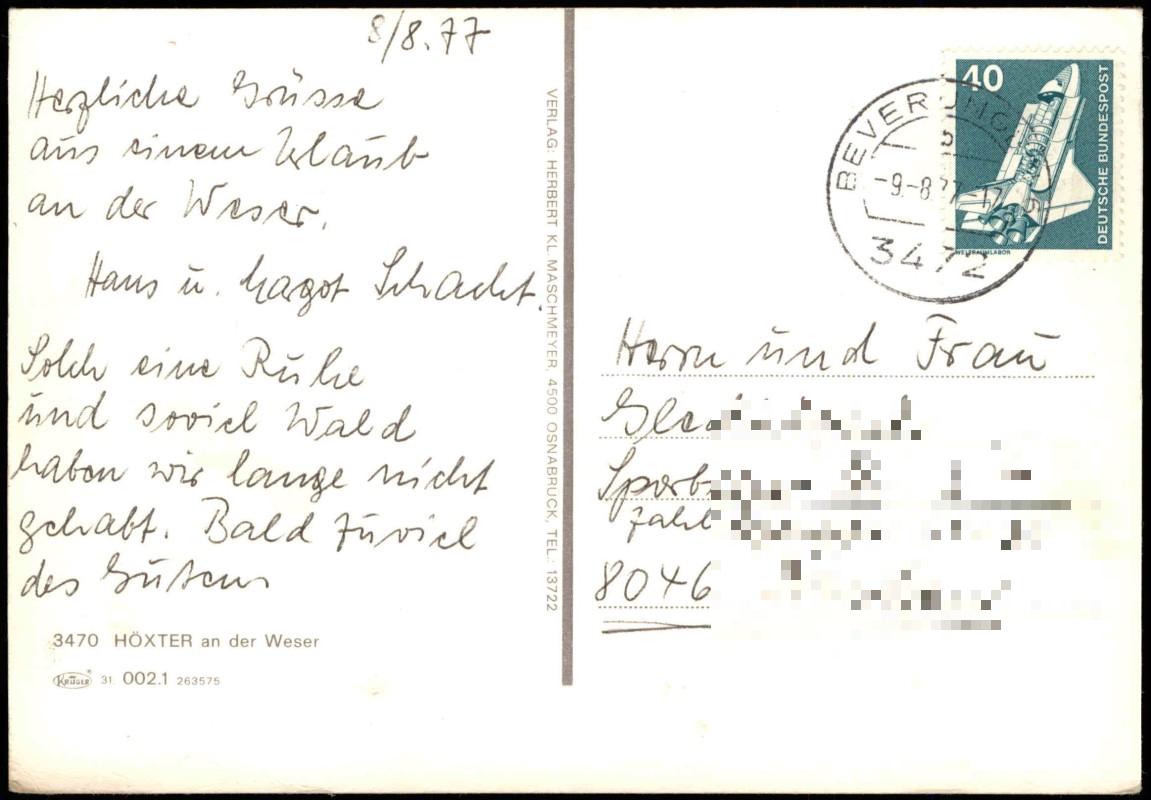 8/8.77
Herzliche Grüsse
aus einem Urlaub
an der Weser.
Hans u. Margot Schacht.
Solch eine Ruhe
und soviel Wald
haben wir lange nicht
gehabt. Bald zuviel
des Guten
3470 HÖXTER an der Weser
KRÜGER 31 002.1 263575
VERLAG: HERBERT KL. MASCHMEYER, 4500 OSNABRUCK, TEL.: 13722
40
DEUTSCHE BUNDESPOST
WELTRAUMLABOR
BEVERUNGEN
-9.-8.77-17
3472
Herrn und Frau
8046